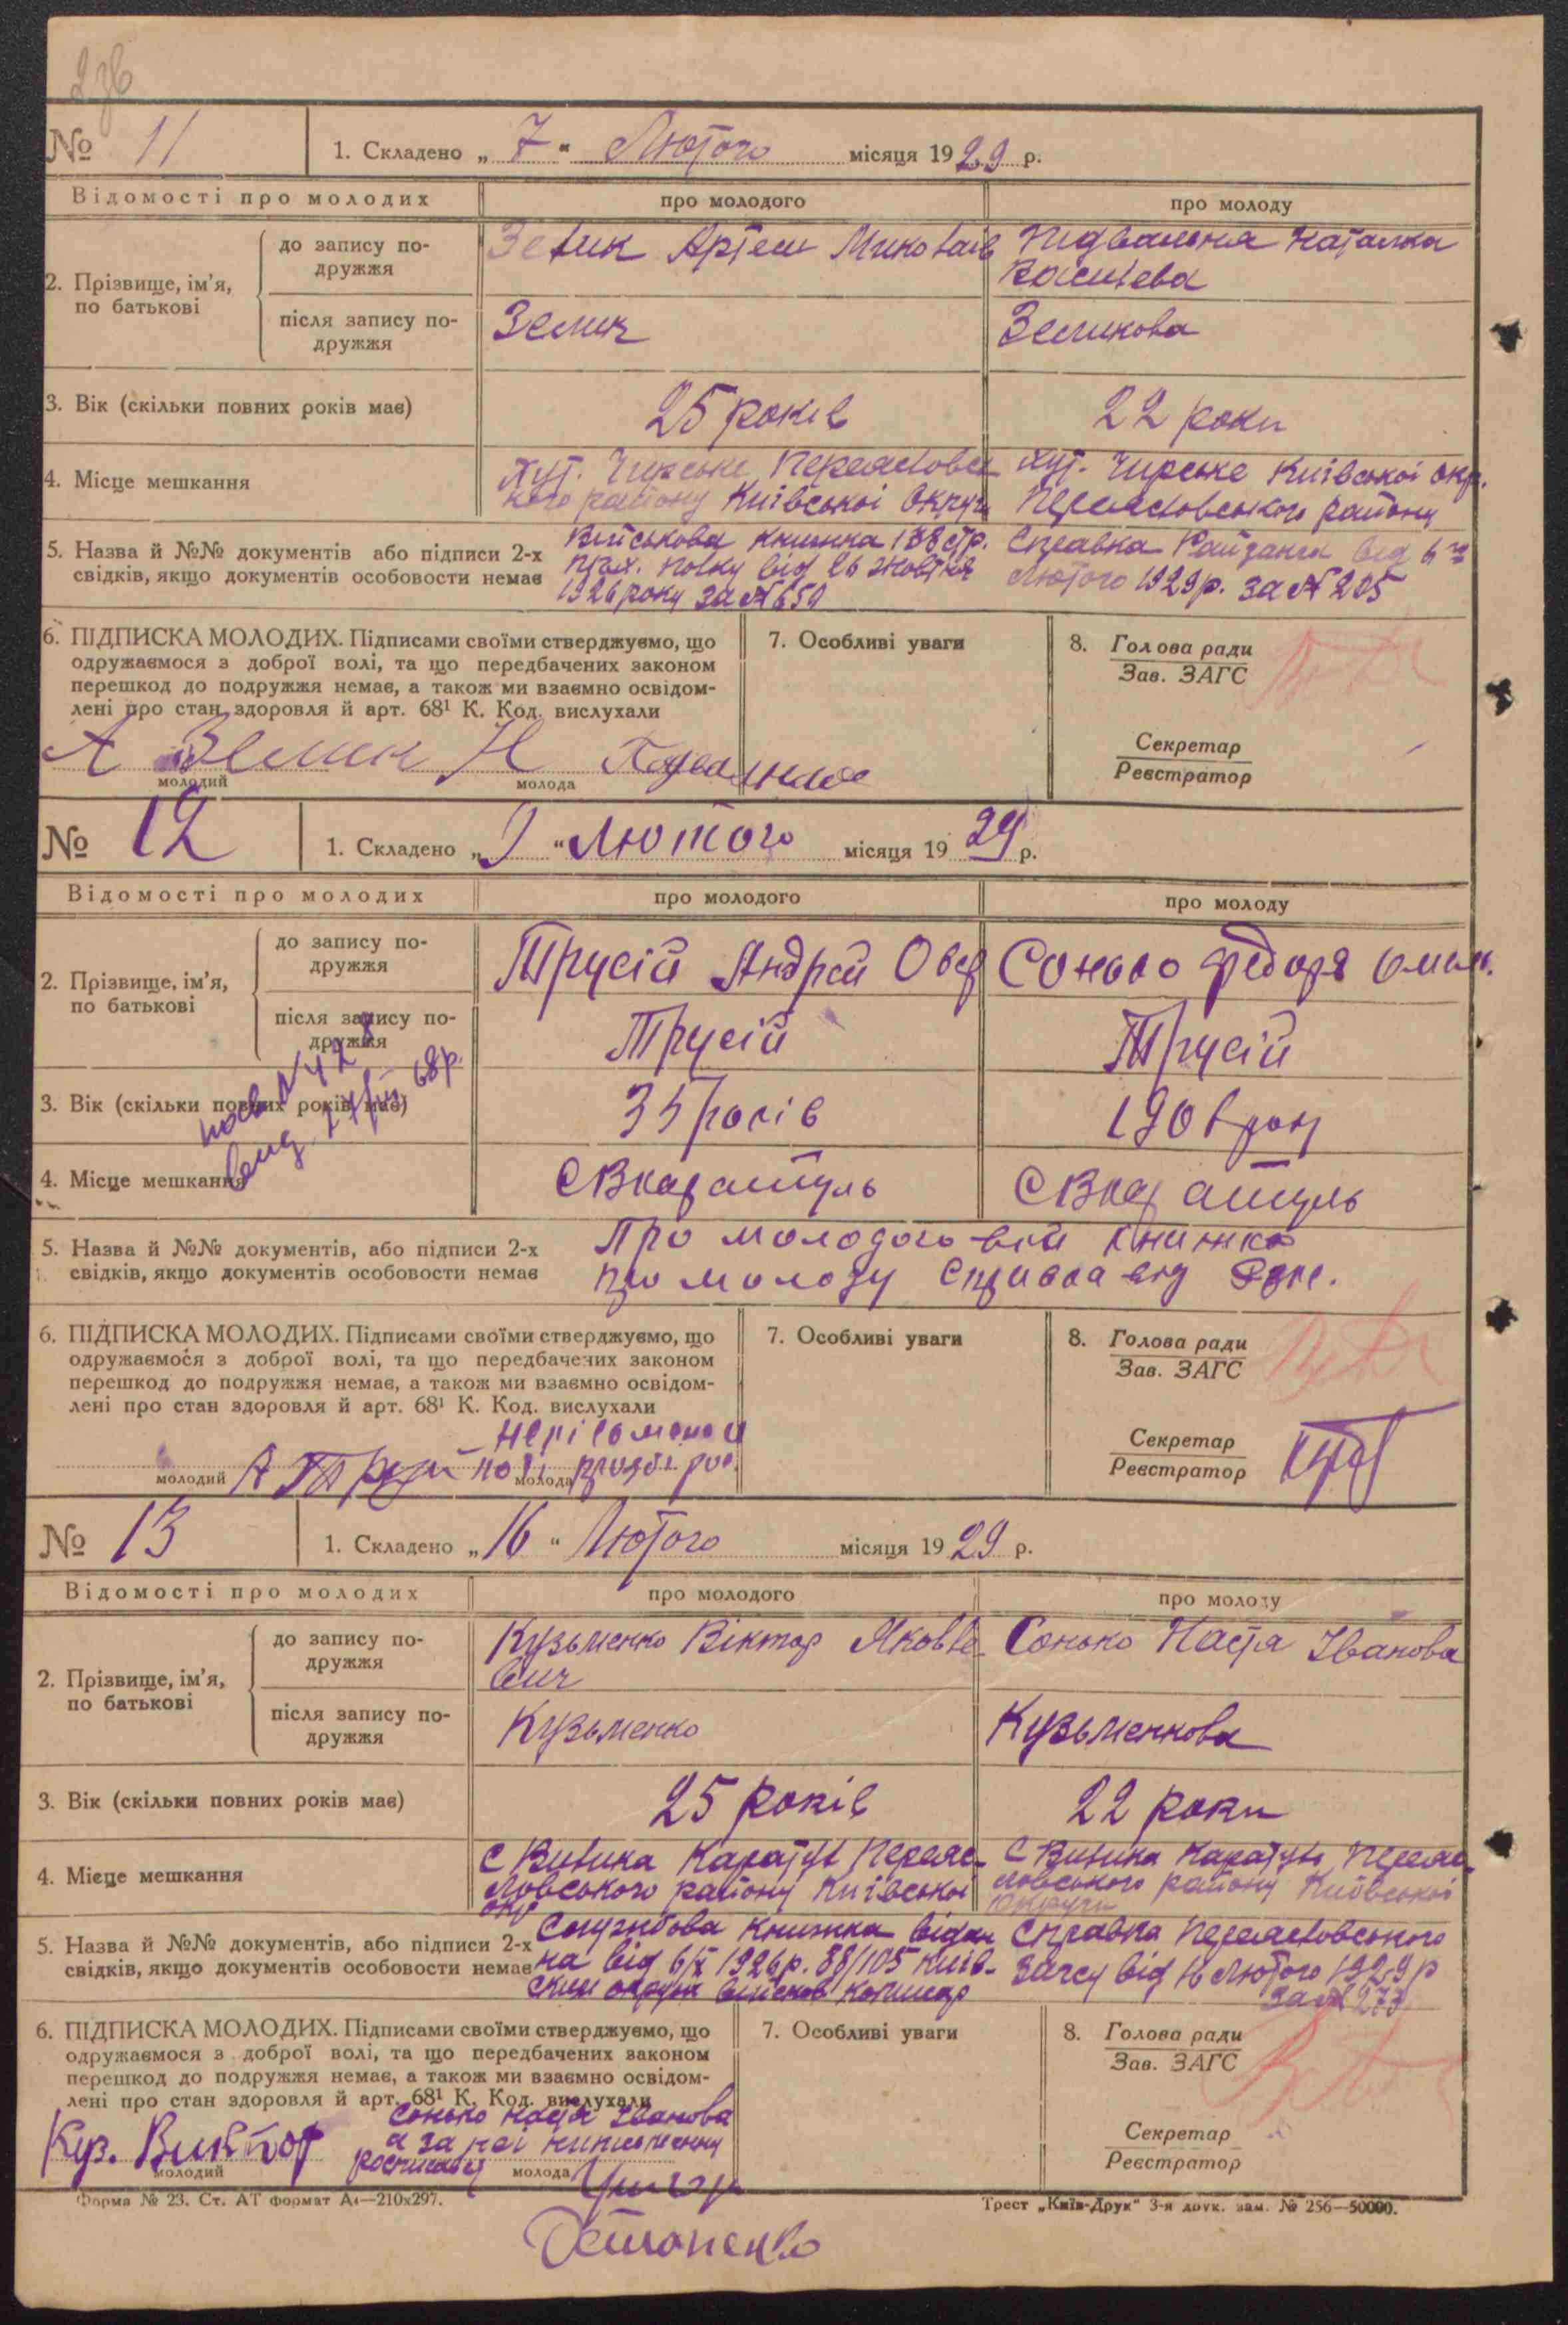 23б
№ 11 1. Складено „ 7 " Лютого місяця 1929 р.
Відомості про молодих про молодого про молоду
2. Прізвище, ім'я, по батькові
до запису подружжя Артем Наталка
після запису подружжя Земик Земикова
3. Вік (скільки повних років має) 25 років 22 роки
4. Місце мешкання Хут. Чирське Хут. Чирське Київської окр.
кого району Київської Округи Переяславського району
5. Назва й №№ документів або підписи 2-х Військова книжка 138 стр. Справка від
свідків, якщо документів особовости немає полку від 26 жовтня Лютого 1929 р. за № 205
1926 року за № 650
6. ПІДПИСКА МОЛОДИХ. Підписами своїми стверджуємо, що 7. Особливі уваги 8. Голова ради
одружаємося з доброї волі, та що передбачених законом Зав. ЗАГС
перешкод до подружжя немає, а також ми взаємно освідом-
лені про стан здоровля й арт. 68¹ К. Код. вислухали
Секретар
А Земик Н
молодий молода Реєстратор
№ 12 1. Складено „ 9 " Лютого місяця 1929 р.
Відомості про молодих про молодого про молоду
2. Прізвище, ім'я, по батькові
до запису подружжя Трусій Андрей Овер Сонько Федора
після запису подружжя Трусій Трусій
3. Вік (скільки повних років має) 35 років
№ 428
68р.
4. Місце мешкання С В каратуль С В каратуль
5. Назва й №№ документів, або підписи 2-х Про молодого вій книжка
свідків, якщо документів особовости немає про молоду справка від
6. ПІДПИСКА МОЛОДИХ. Підписами своїми стверджуємо, що 7. Особливі уваги 8. Голова ради
одружаємося з доброї волі, та що передбачених законом Зав. ЗАГС
перешкод до подружжя немає, а також ми взаємно освідом-
лені про стан здоровля й арт. 68¹ К. Код. вислухали
Секретар
молодий А молода Реєстратор
№ 13 1. Складено „ 16 " Лютого місяця 1929 р.
Відомості про молодих про молодого про молоду
2. Прізвище, ім'я, по батькові
до запису подружжя Кузьменко Віктор Яковле- Сонько Настя Іванова
вич
після запису подружжя Кузьменко Кузьменкова
3. Вік (скільки повних років має) 25 років 22 роки
4. Місце мешкання С Велика Каратуль Переяс- С Велика Каратуль Переяс-
лавського району Київської лавського району Київської
окр Округи
5. Назва й №№ документів, або підписи 2-х Службова книжка видан Справка Переяславського
свідків, якщо документів особовости немає на від 6/X 1926 р. 88/105 Київ- Загсу від 16 Лютого 1929 р
ским округи військов за № 273
6. ПІДПИСКА МОЛОДИХ. Підписами своїми стверджуємо, що 7. Особливі уваги 8. Голова ради
одружаємося з доброї волі, та що передбачених законом Зав. ЗАГС
перешкод до подружжя немає, а також ми взаємно освідом-
лені про стан здоровля й арт. 68¹ К. Код. вислухали
Сонько Настя Іванова
Секретар
Куз. Виктор а за неї
молодий молода Реєстратор
Форма № 23. Ст. АТ формат А4—210х297. Трест „Київ-Друк" 3-я друк. зам. № 256—50000.